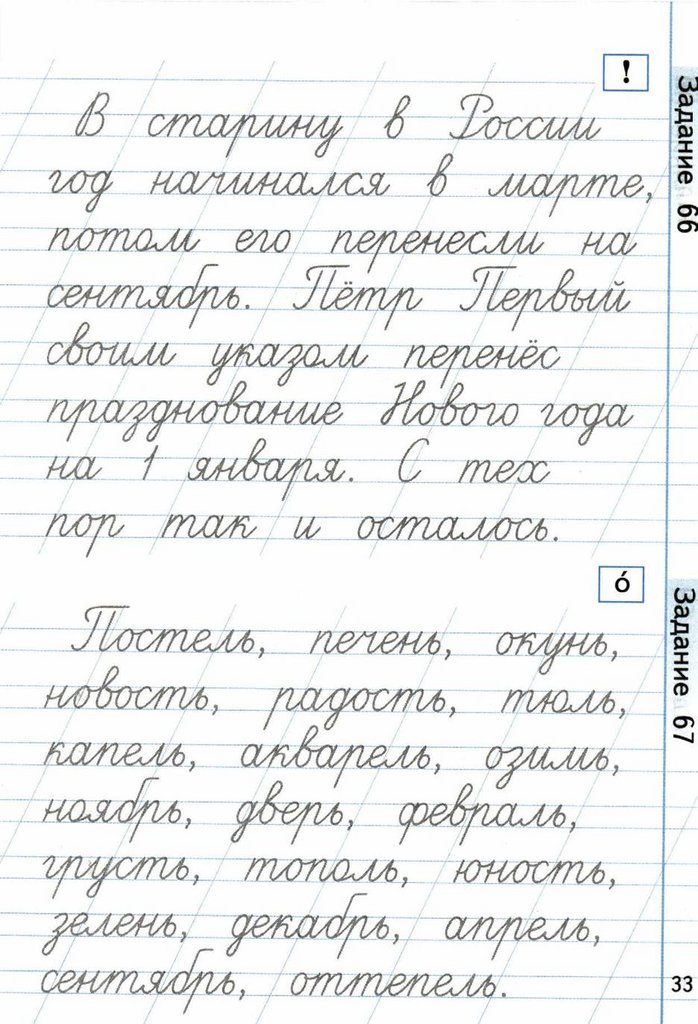 !
Задание 66
В старину в России
год начинался в марте,
потом его перенесли на
сентябрь. Пётр Первый
своим указом перенёс
празднование Нового года
на 1 января. С тех
пор так и осталось.
о́
Задание 67
Постель, печень, окунь,
новость, радость, тюль,
капель, акварель, озимь,
ноябрь, дверь, февраль,
грусть, тополь, юность,
зелень, декабрь, апрель,
сентябрь, оттепель.
33